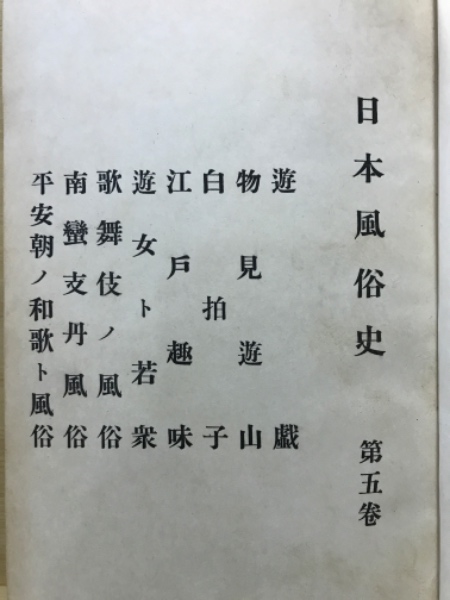 日本風俗史 第五巻
遊戯
物見遊山
白拍子
江戸趣味
遊女ト若衆
歌舞伎ノ風俗
南蠻支丹風俗
平安朝ノ和歌ト風俗